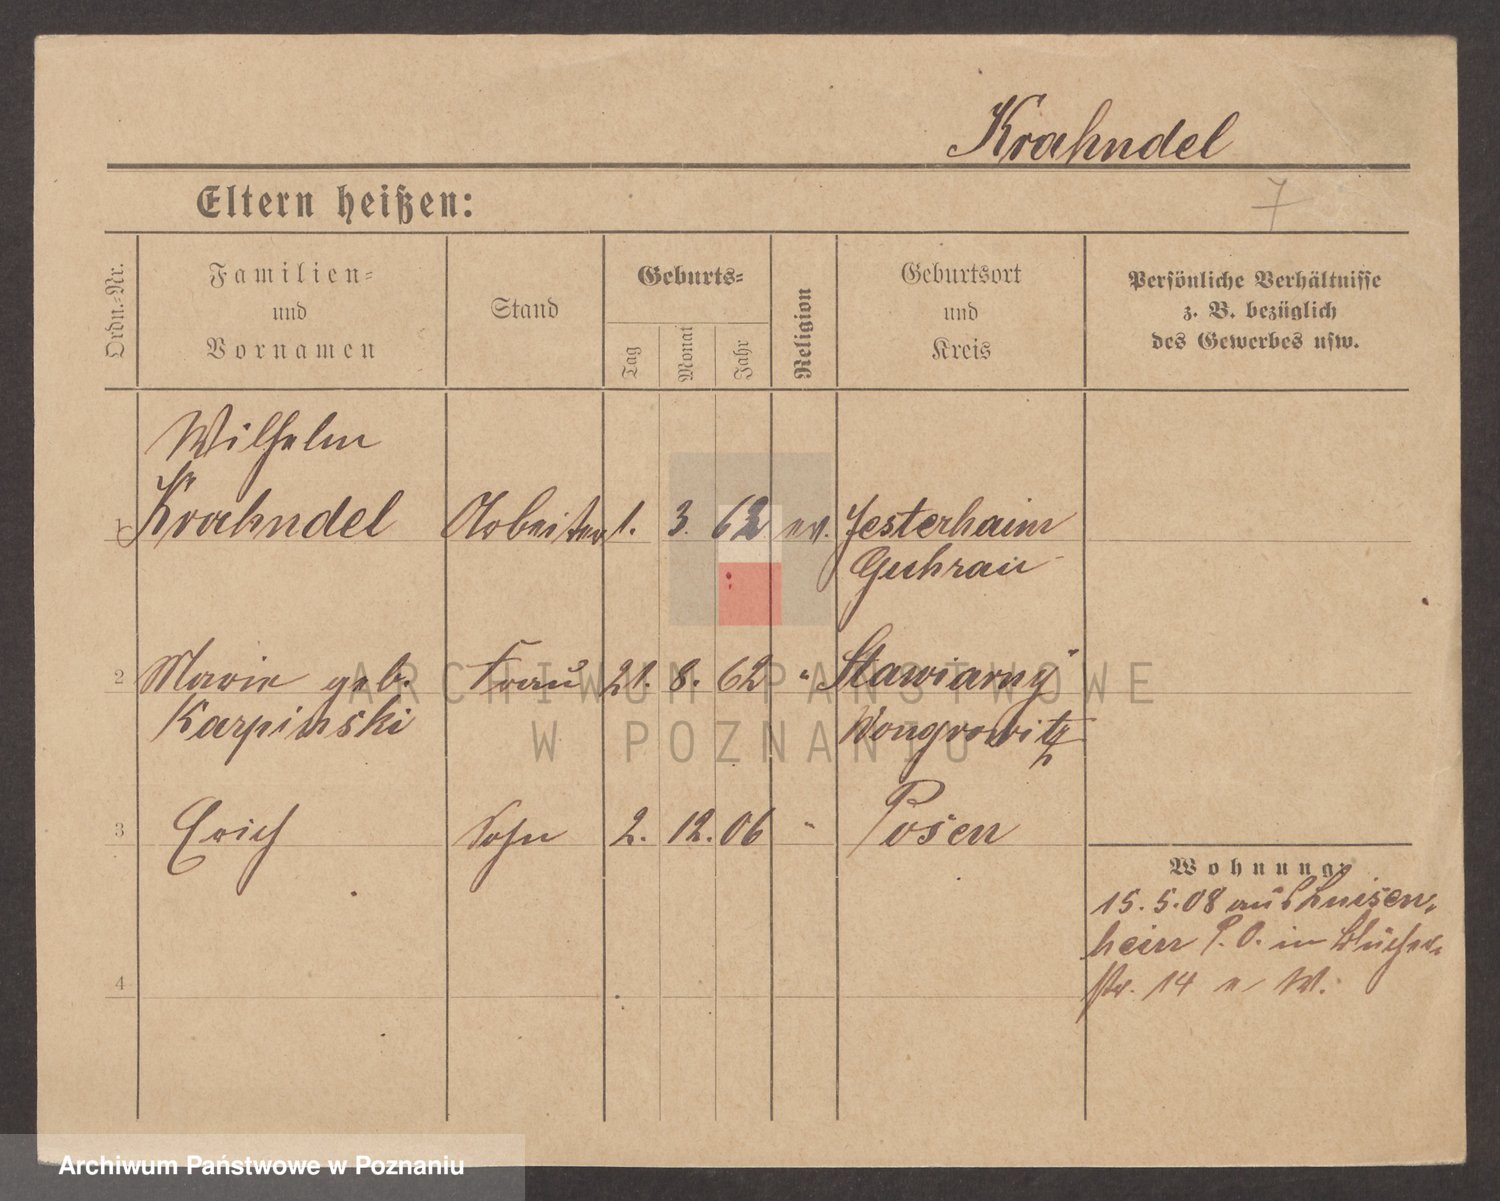 Krahndel
7
Eltern heißen:
Ordn.-Nr.
Familien-
und
Vornamen
Stand
Geburts-
Tag
Monat
Jahr
Religion
Geburtsort
und
Kreis
Persönliche Verhältnisse
z. B. bezüglich
des Gewerbes usw.
Wilhelm
1 Krahndel Arbeiter 1. 3. 62 ev. Jesterheim
Guhrau
2 Marie geb. Frau 21. 8. 62 " Stawiany
Karpinski Wongrowitz
3 Erich Sohn 2. 12. 06 " Posen
Wohnung:
15. 5. 08 aus Luisen-
hein P. O. in Blücher-
str. 14 W.
4
ARCHIWUM PAŃSTWOWE
W POZNANIU
Archiwum Państwowe w Poznaniu